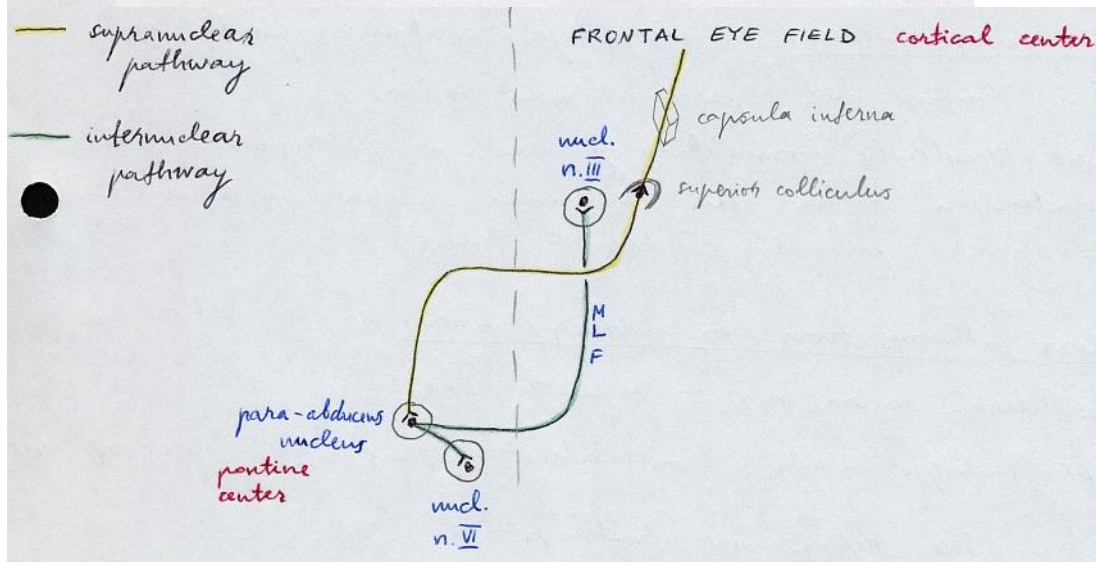 supranuclear
pathway
internuclear
pathway
FRONTAL EYE FIELD cortical center
capsula interna
nucl.
n. III
superior colliculus
M
L
F
para-abducens
nucleus
pontine
center
nucl.
n. VI